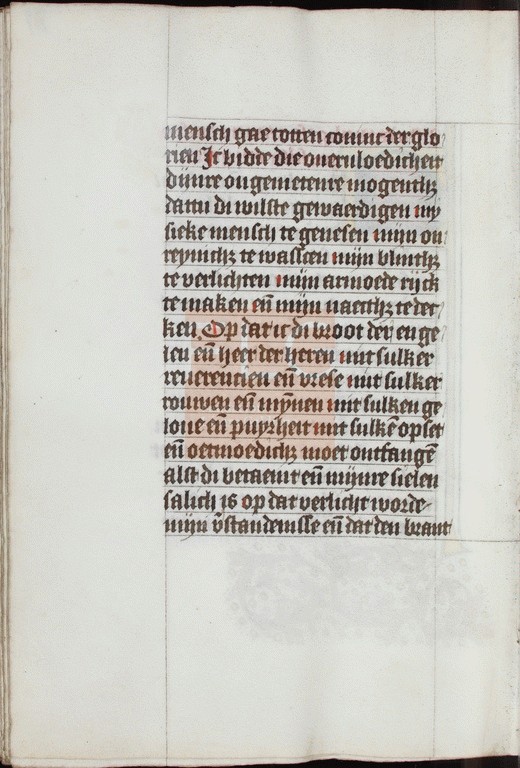 mensch gae totten coninc der glo
rien Ic bidde die overvloedicheit
dijnre ongemetenre mogenthz
dattu di wilste gewaerdigen my
sieke mensch te genesen mijn on
reynichz te wasscen mijn blinthz
te verlichten mijn armoede rijck
te maken eñ mijn naecthz te dec
ken Op dat ic di broot der enge
len eñ heer der heren mit sulker
reverencien eñ vrese mit sulker
rouwen eñ mynnen mit sulken ge
love eñ puyrheit mit sulkē opset
eñ oetmoedichz moet ontfangē
alst di betaemt eñ mijnre sielen
salich is op dat verlicht worde
mijn v̄standenisse eñ dat den brant